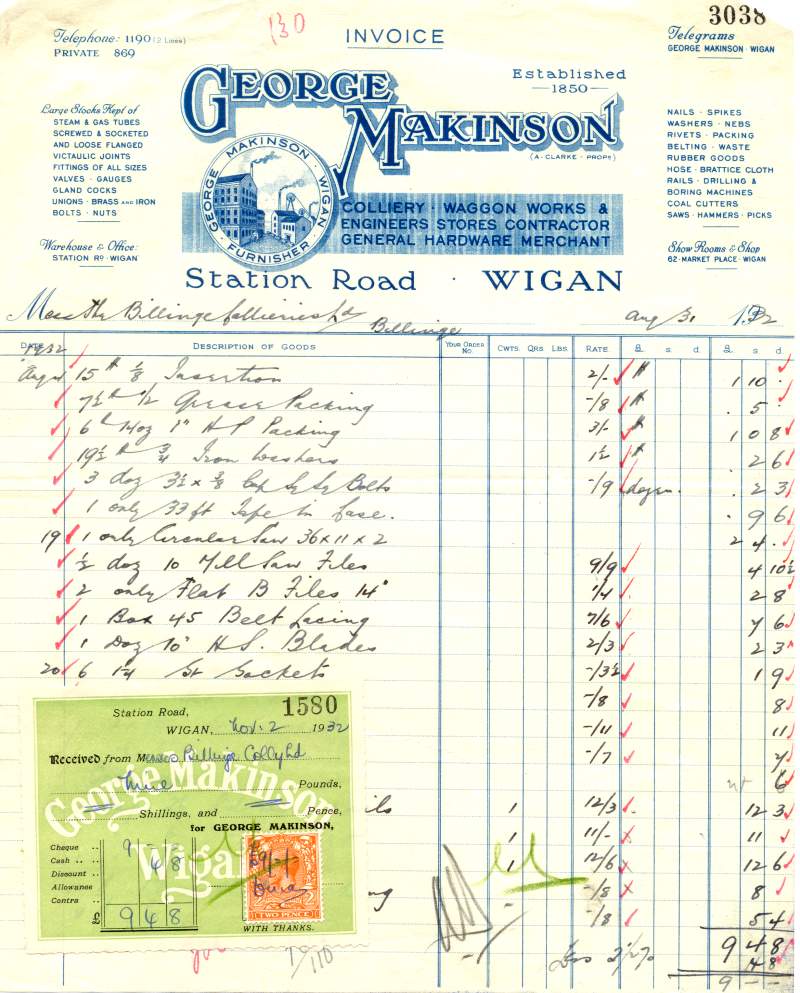 130
3038
Telephone: 1190 (2 Lines)
PRIVATE 869
INVOICE
Telegrams
GEORGE MAKINSON · WIGAN
Established
1850
GEORGE MAKINSON
(A · CLARKE · PROPR)
Large Stocks Kept of
STEAM & GAS TUBES
SCREWED & SOCKETED
AND LOOSE FLANGED
VICTAULIC JOINTS
FITTINGS OF ALL SIZES
VALVES · GAUGES
GLAND COCKS
UNIONS · BRASS AND IRON
BOLTS · NUTS
Warehouse & Office:
STATION RD · WIGAN
GEORGE · MAKINSON · WIGAN · FURNISHER
COLLIERY · WAGGON WORKS &
ENGINEERS STORES CONTRACTOR
GENERAL HARDWARE MERCHANT
NAILS · SPIKES
WASHERS · NEBS
RIVETS · PACKING
BELTING · WASTE
RUBBER GOODS
HOSE · BRATTICE CLOTH
RAILS · DRILLING &
BORING MACHINES
COAL CUTTERS
SAWS · HAMMERS · PICKS
Show Rooms & Shop
62 · MARKET PLACE · WIGAN
Station Road · WIGAN
Mess The Billinge Collieries Ld Billinge Aug 31 1932
DATE DESCRIPTION OF GOODS YOUR ORDER No. CWTS. QRS LBS. RATE £ s. d. £ s d
1932
Aug 15 lb 1/8 Insertion 2/- lb 1 10 .
7½ lb 1/2 Grease Packing -/8 lb . 5 .
6 lb 14oz 1" H P Packing 3/- lb 1 0 8
19½ lb ¾ Iron Washers 1½ lb 2 6
3 doz 3½ x 3/8 Cup Sq Sq Bolts -/9 dozen . 2 3
1 only 33 ft Tape in Case. 9 6
19 1 only Circular Saw 36 x 11 x 2 2 4 .
½ doz 10 Mill Saw Files 9/9 4 10½
2 only Flat B Files 14" 1/4 2 8
1 Box 45 Belt Lacing 7/6 7 6
1 Doz 10" H.S. Blades 2/3 2 3
20 6 1¼ St Sockets -/3½ 1 9
-/8 8
-/11 11
-/7 7
6
ils 1 12/3 12 3
1 11/- 11
1 12/6 12 6
ng -/8 8
-/8 5 4
9 4 8
Less 2½% 4 8
9 - -
1580
Station Road,
WIGAN, Nov. 2 1932
Received from Messrs Billinge Colly Ld
Nine Pounds,
Shillings, and Pence,
for GEORGE MAKINSON,
George Makinson
Wigan
Cheque 9 - -
Cash 4 8
Discount
Allowance
Contra
£ 9 4 8
£9/-/-
TWO PENCE
WITH THANKS.